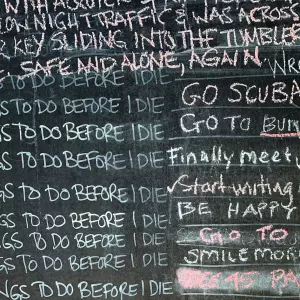 WITH
ON NIGHT TRAFFIC & WAS ACROSS
KEY SLIDING INTO THE TUMBLE
SAFE AND ALONE, AGAIN
BEFORE I DIE
GS TO DO BEFORE I DIE GO SCUBA
GS TO DO BEFORE I DIE GO TO BU
GS TO DO BEFORE I DIE Finally meet
GS TO DO BEFORE I DIE Start writing
GS TO DO BEFORE I DIE BE HAPPY
GS TO DO BEFORE I DIE GO TO
GS TO DO BEFORE I DIE SMILE MOR
GS TO DO BEFORE I DIE
NGS TO DO BEFORE I DIE